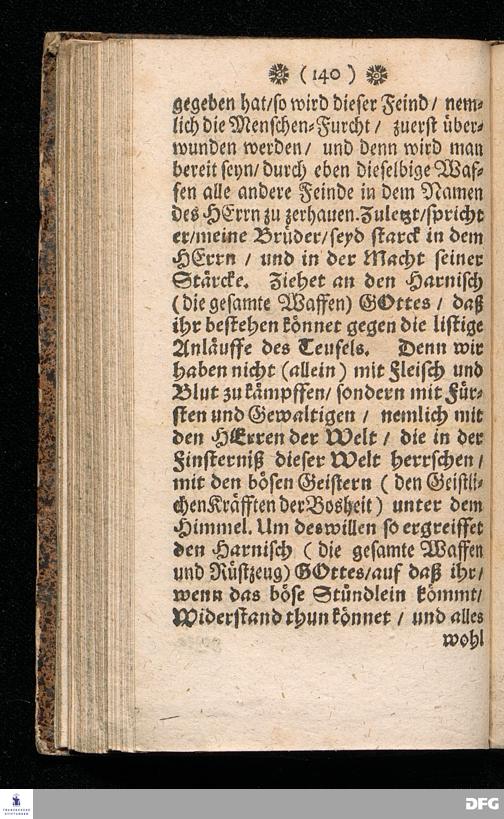 ( 140 )
gegeben hat/so wird dieser Feind/ nem-
lich die Menschen-Furcht / zuerst über-
wunden werden/ und denn wird man
bereit seyn/durch eben dieselbige Waf-
fen alle andere Feinde in dem Namen
des HErrn zu zerhauen. Zuletzt/spricht
er/meine Brüder/seyd starck in dem
HErrn / und in der Macht seiner
Stärcke. Ziehet an den Harnisch
(die gesamte Waffen) GOttes / daß
ihr bestehen könnet gegen die listige
Anläuffe des Teufels. Denn wir
haben nicht (allein) mit Fleisch und
Blut zu kämpffen/ sondern mit Für-
sten und Gewaltigen / nemlich mit
den HErren der Welt / die in der
Finsterniß dieser Welt herrschen /
mit den bösen Geistern ( den Geistli-
chen Kräfften der Bosheit ) unter dem
Himmel. Um deswillen so ergreiffet
den Harnisch ( die gesamte Waffen
und Rüstzeug) GOttes/auf daß ihr/
wenn das böse Stündlein kömmt/
Widerstand thun könnet / und alles
wohl
FRANCKESCHE
STIFTUNGEN
DFG